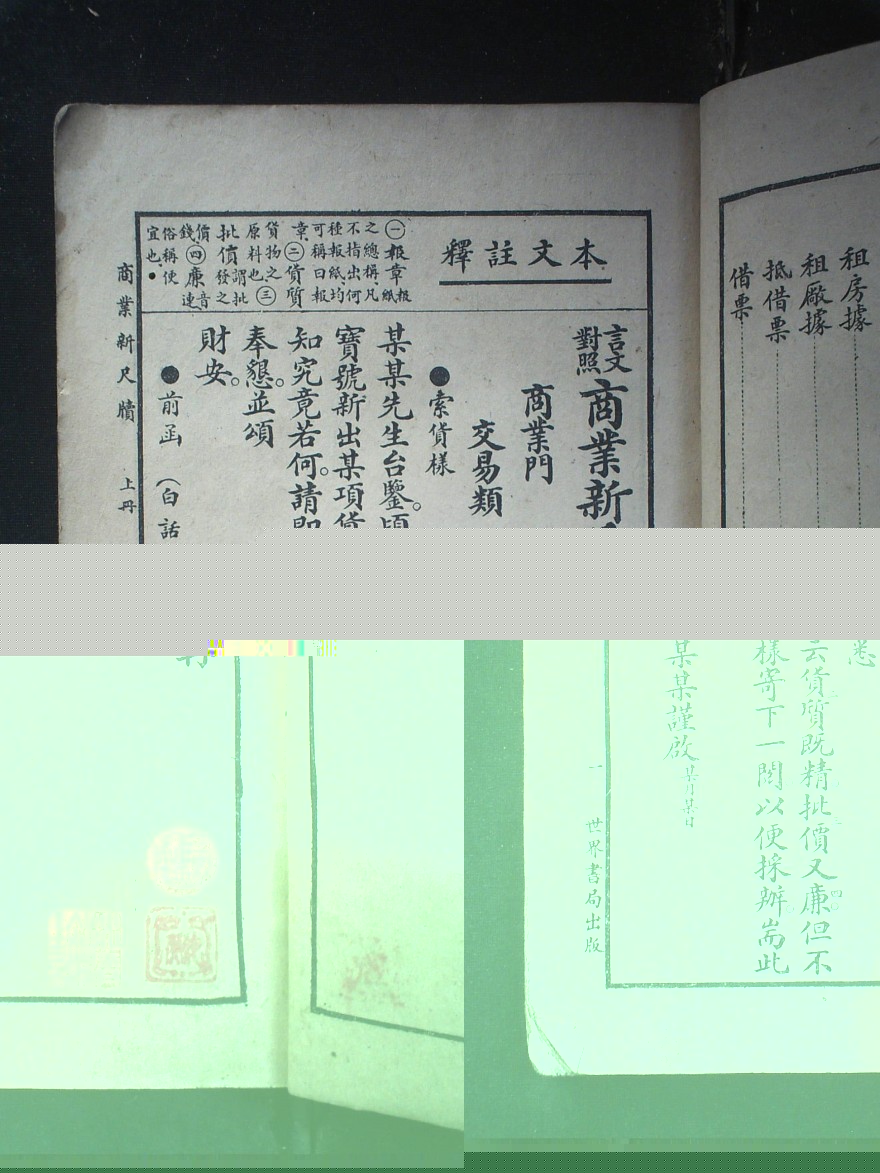 租房據
租廠據
抵借票
借票
本文註釋
㊀報章報紙
之總稱凡
不指出何
種報紙均
可稱曰報
章㊁貨質
貨物之
原料也㊂
批價謂批發之
價錢㊃廉音連
俗稱便
宜也
言文對照商業新
商業門
交易類
●索貨樣
某某先生台鑒。頃
寶號新出某項貨
知究竟若何。請即
奉懇。並頌
財安。
●前函(白話
商業新尺牘 上冊
悉
云貨質既精批價又廉但不
樣寄下一閱以便採辦耑此
某某謹啟某月某日
一 世界書局出版